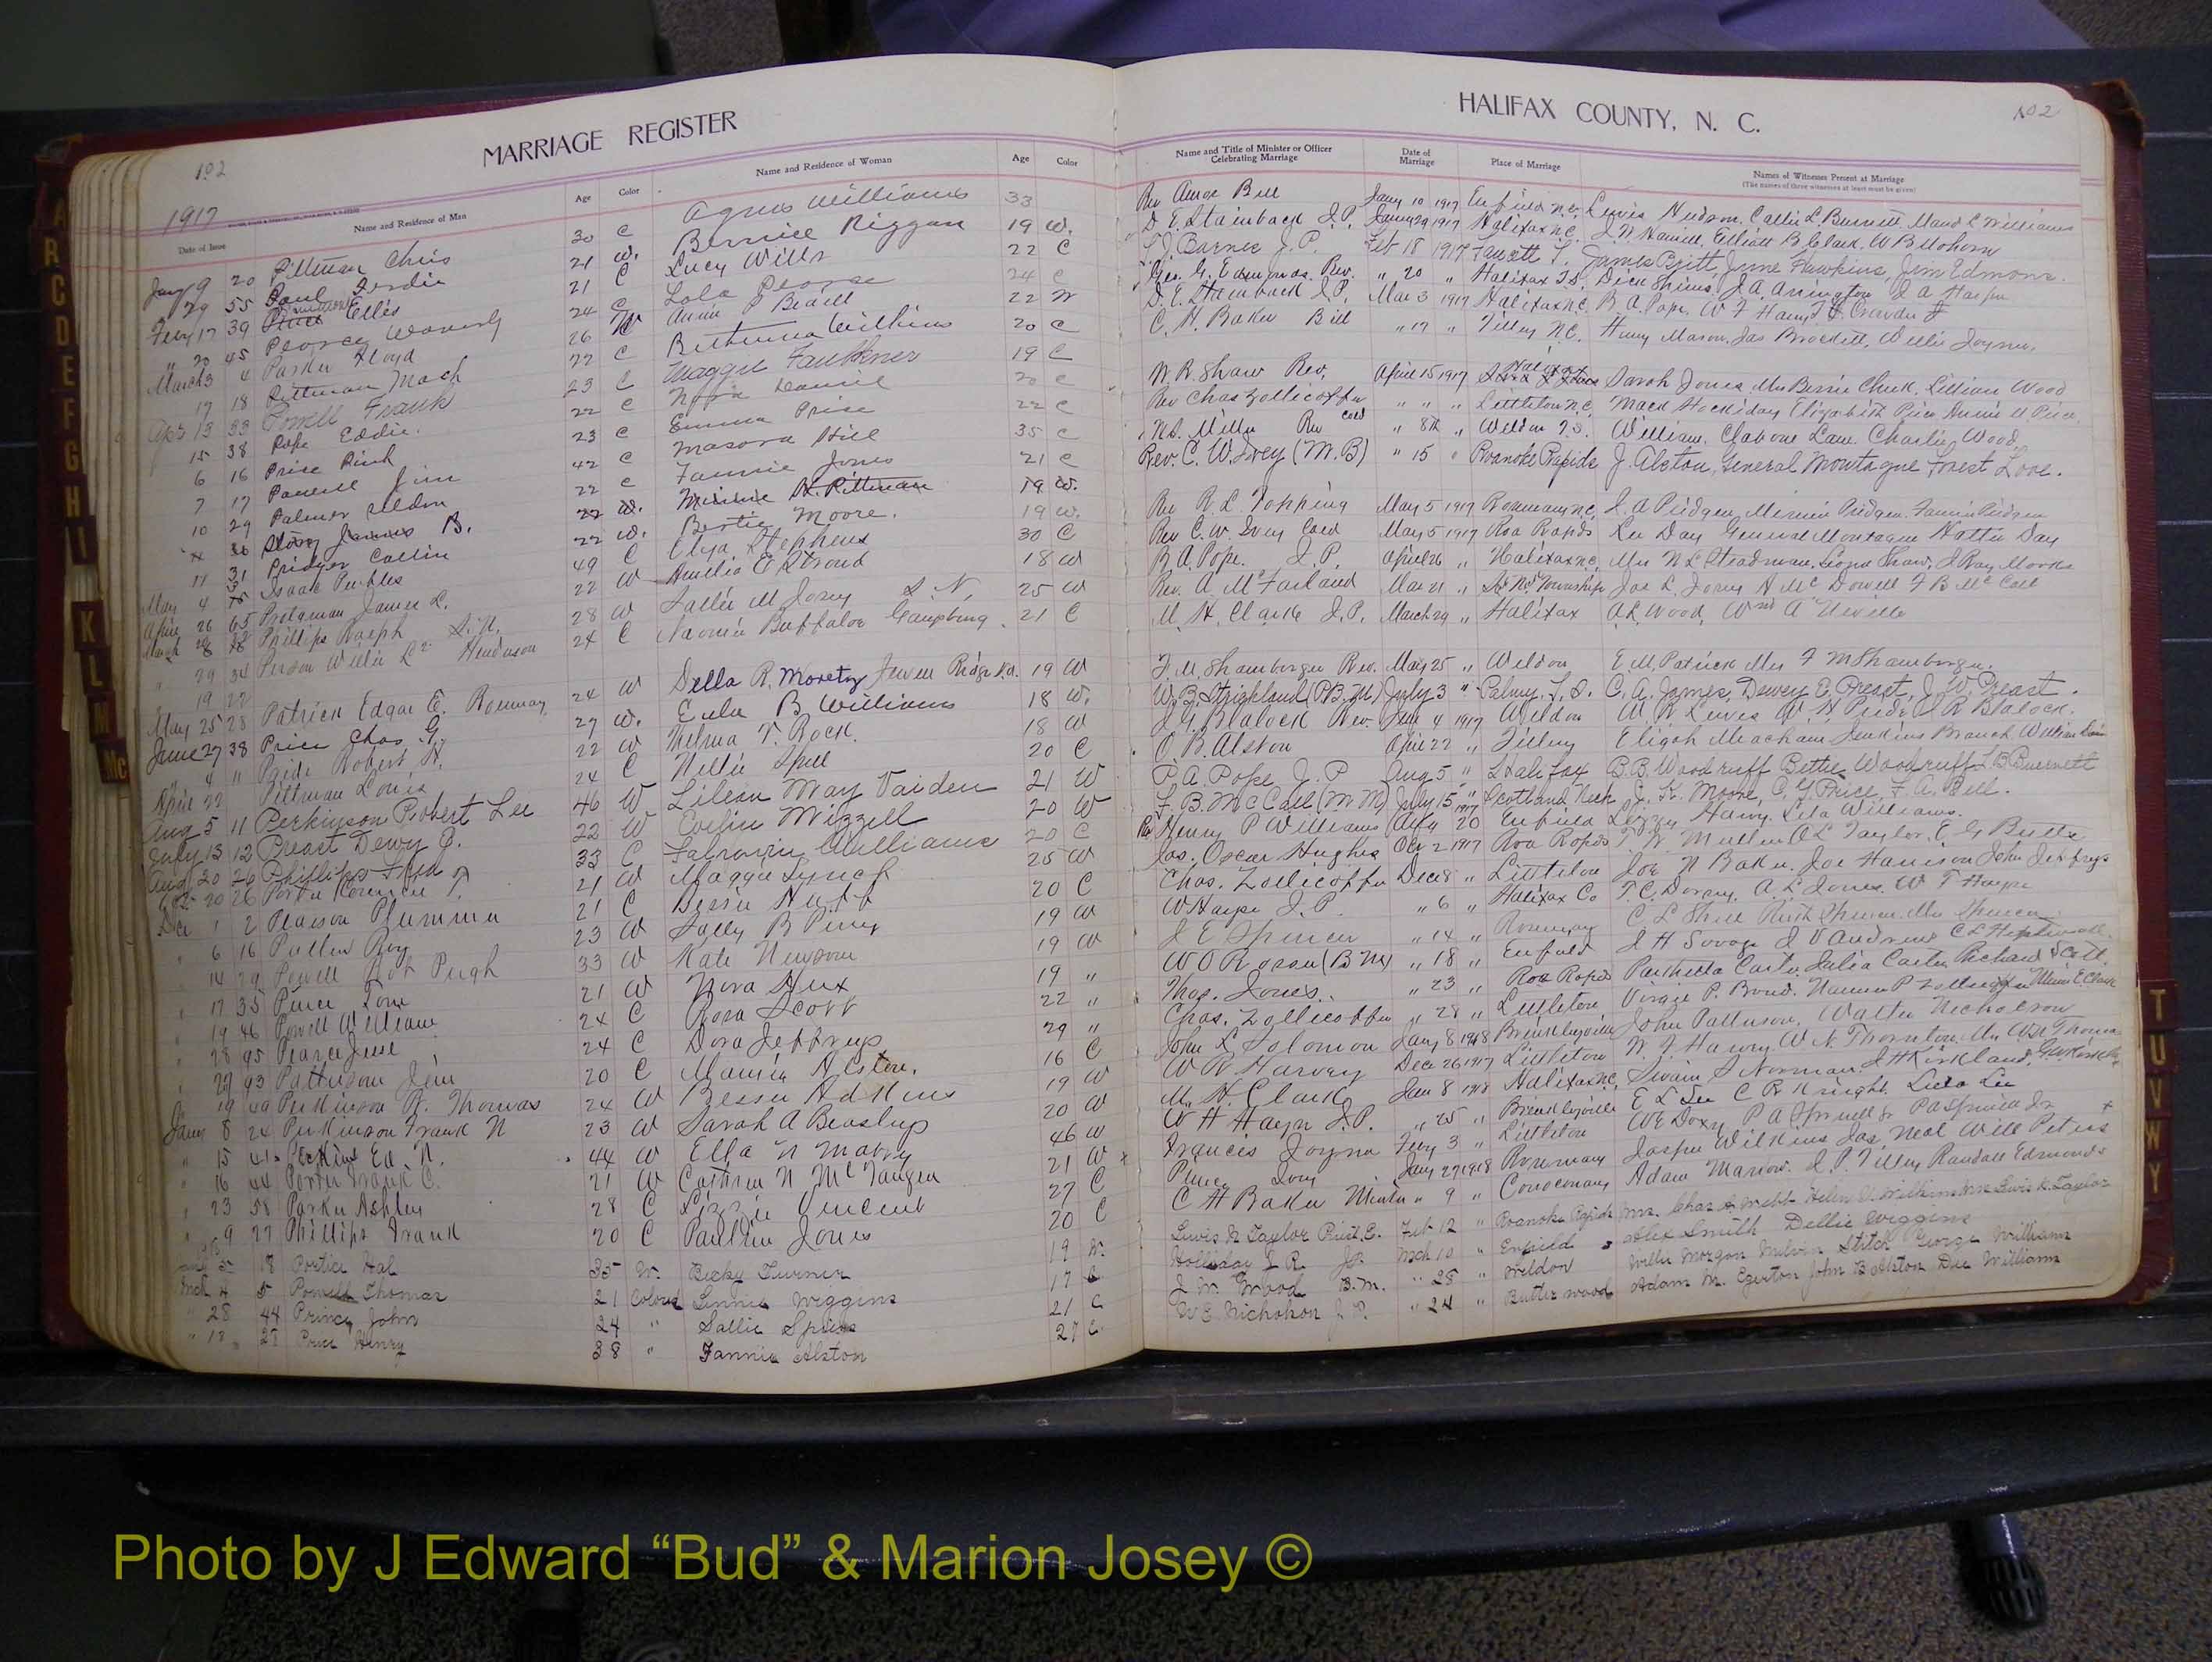 102
MARRIAGE REGISTER
1917
Date of Issue Name and Residence of Man Age Color Name and Residence of Woman Age Color
Jany 9 20 Pittman Chris 30 C Agnes Williams 33
" 29 55 Paul Ferdie 21 W. Bernice Riggan 19 W.
Feby 17 39 Ellis 21 C Lucy Wills 22 C
" 20 45 Pearcy Waverly 24 C Lola Pearce 24 C
March 3 4 Parker Floyd 26 W Annie P Beale 22 W
17 18 Pittman Mack 22 C Bethenia Wilkins 20 C
Apr 13 33 Powell Frank 23 C Maggie Faulkner 19 C
15 38 Pope Eddie. 22 C Nora 20 C
6 16 Price Pink 23 C Emma Price 22 C
7 17 Powell Jim 42 C Masora Hill 35 C
10 29 Palmer Weldon 22 C Fannie Jones 21 C
James B. 22 W. Minnie H. Pittman 19 W.
11 31 Pridgen Callin 22 W. Bertie Moore. 19 W.
May 4 15 Isaac Peebles 49 C Eliza Stephens 30 C
April 26 65 Protzman James L. 22 W Amelia E Stroud 18 W
March 28 Phillips Raleph S.N. 28 W Sallie M Josey S. N. 25 W
" 29 34 Person Willie L Henderson 24 C Naomie Buffaloe Gaugburg. 21 C
19 22
May 25 28 Patrick Edgar E. Rosemary 24 W Della R. Moretz Jewell Ridge Va. 19 W
June 27 38 Price Chas. G. 27 W. Eula B Williams 18 W.
" 4 " Pride Robert H. 22 W Thelma T. Rock. 18 W
April 22 Pittman Louis 24 C Nellie Spell 20 C
Aug 5 11 Perkinson Robert Lee 46 W. Lilian May Vaiden 21 W
July 13 12 Preast Dewy E. 22 W Evelin Mizzell 20 W
Aug 20 26 Phillips Fred 33 C Williams 20 C
Oct 20 26 Porter T. 21 W Maggie Lynch 25 W
Dec 1 2 Pearson Plummer 21 C Bessie Huff 20 C
" 6 16 Pullen Roy 23 W Sally B Perry 19 W
" 14 29 Powell Bob Pugh 33 W Kate Newsom 19 W
" 17 35 Pierce Tom 21 W Nora Hux 19 "
" 19 46 Powell William 24 C Rosa Scott 22 "
" 28 95 Pearce Jesse 24 C Dora Jeffreys 29 "
" 27 93 Patterson Jim 20 C Mamie Alston. 16 C
" 19 49 Perkinson R. Thomas 24 W Bessie Adkins 19 W
Jany 8 24 Perkinson Frank N 23 W Sarah A Beaslup 20 W
" 15 41 Perkins Ed. N. 44 W Ella N Mabry 46 W
" 16 44 Porter Frank C. 21 W Cathrin N McTaugen 21 W
" 23 58 Parker Ashley 28 C Lizzie Vincent 27 C
" 9 27 Phillips Frank 20 C Pauline Jones 20 C
5 18 Portice Hal 35 W. Becky Turner 19 W.
Mch 4 5 Powell Thomas 21 Colored Linnie Wiggins 17 C
" 28 44 Prince John 24 " Sallie Spruse 21 C
" 13 28 Price Henry 38 " Fannie Alston 27 C.
HALIFAX COUNTY, N. C.
102
Name and Title of Minister or Officer Celebrating Marriage Date of Marriage Place of Marriage Names of Witnesses Present at Marriage
(The names of three witnesses at least must be given)
Rev Amos Bell Jany 10 1917 Enfield N.C. Lewis Hudson, Callie L Burnett, Maud E Williams
D. E. Stainback J.P. Jany 29 1917 Halifax N.C. J. N. Harrell, Elliott B Clark, W B Mohorn
L. J. Barnes J.P. Feb 18 1917 Faucett T. James Britt, June Hawkins, Jim Edmons.
Geo. G. Edmonds. Rev. " 20 " Halifax T.S. Dick Shines J. A. Arrington J A Harper
D. E. Stainback J.P. Mar 3 1917 Halifax N.C. R. A. Pope, W F
C. H. Baker Bill " 17 " Tillery N.C. Henry Mason, Jas Brockett, Willie Joyner.
W. R. Shaw Rev. April 15 1917 Sarah Jones, Mrs Bessie Cheek, Lillian Wood
Rev Chas Zollicoffer " " " Littleton N.C. Mack Hockiday Elizabeth Price Annie M Price
N.S. Miller Rev Cold " 8th " Weldon T.S. William. Claborne Lane. Charlie Wood
Rev. C. W. Ivey (M.B) " 15 " Roanoke Rapids J. Alston, General Montague Forest Love.
Rev R. L. Topping May 5 1917 Rosemary N.C. J. A Pridgen, Minnie Pridgen. Fannie Pridgen
Rev C. W. Ivey Cold May 5 1917 Roa Rapids Lee Day General Montague Hattie Day
R. A. Pope. J.P. April 26 " Halifax N.C. Mrs N L Steadman. Leona Shaw, J Ray Moorke
Rev. A. McFarland Mar 21 " Sc. Nk. Township Jas L. Josey N McDowell F B McCall
M. H. Clark J.P. March 29 " Halifax A. L. Wood, Wm A Neville
F. M. Shamburger Rev. May 25 " Weldon E. M. Patrick Mrs F M Shamburger.
W. B. Strickland (P.B.M) July 3 " Palmy. T. S. C. A. James, Dewey E. Preast, J. W. Preast.
J. G. Blalock Rev. June 4 1917 Weldon W. R. Lewis W. H Pride J R Blalock.
O. B. Alston April 22 " Tillery Eligah Meacham Jenkins Branch William
P. A. Pope J. P. Aug 5 " Halifax B.B. Woodruff Bettie Woodruff L B Burnett
F. B. McCall (M M) July 15 1917 " Scotland Neck J. K. Moore, C. G. Price, F. A. Bell.
Rev Henry P Williams Aug 20 Enfield Lizzy Harvy. Lila Williams.
Jas. Oscar Hughes Oct 2 1917 Roa Rapids T. W. Mullen A L Taylor. E G Butts
Chas. Zollicoffer Dec 8 " Littleton Joe N Baker. Joe Harrison John Jeffreys
W Harper J.P. " 6 " Halifax Co T. C. Dorsey. A. L. Jones. W T Harper
J E Spencer " 14 " Rosemary C. L Shell Ruth Spencer. Mrs Spencer
W O Rosser (B M) " 18 " Enfield J H Savage J V Andrews
Thos. Jones. " 23 " Roa Rapids Parthenia Carter Julia Carter Richard Scott.
Chas. Zollicoffer " 28 " Littleton Virgie P. Bond. Nannie P Zollicoffer Minnie E Cheek
John L Solomon Jany 8 1918 Brinkleyville John Patterson. Walter Nicholson
W W Harvey Dec 26 1917 Littleton W. J. Harvey W. N. Thornton Mrs Thorne
M. H. Clark Jan 8 1918 Halifax N.C. Swain S Norman J H Kirkland
W H Harper J.P. " 25 " Brinkleyville E L Lee C R Knight. Lula Lee
Francis Joyner Feby 3 " Littleton
Pierce Jany 27 1918 Rosemary Jasper Wilkins Jas Neal Will Peters
C H Baker Minister " 9 " Conoconary Adam Marrow. J. P. Tilley Randall Edmonds
Lewis N Taylor Priest E. Feb 12 " Roanoke Rapids Mrs. Chas A Webb Mrs Lewis N. Taylor
Holliday J. R. J.P. Mch 10 " Enfield Alex Smith Dellie Wiggins
J. W. Wood B.M. " 28 " Weldon Willie Morgan Melvin Stitch George Williams
W E Nicholson J.P. " 24 " Butterwood Adam M. Egerton John B Alston Dee Williams
A
R
C
D
E
F
G
H
I
K
L
M
Mc
T
U
V
W
Y
Photo by J Edward “Bud” & Marion Josey ©